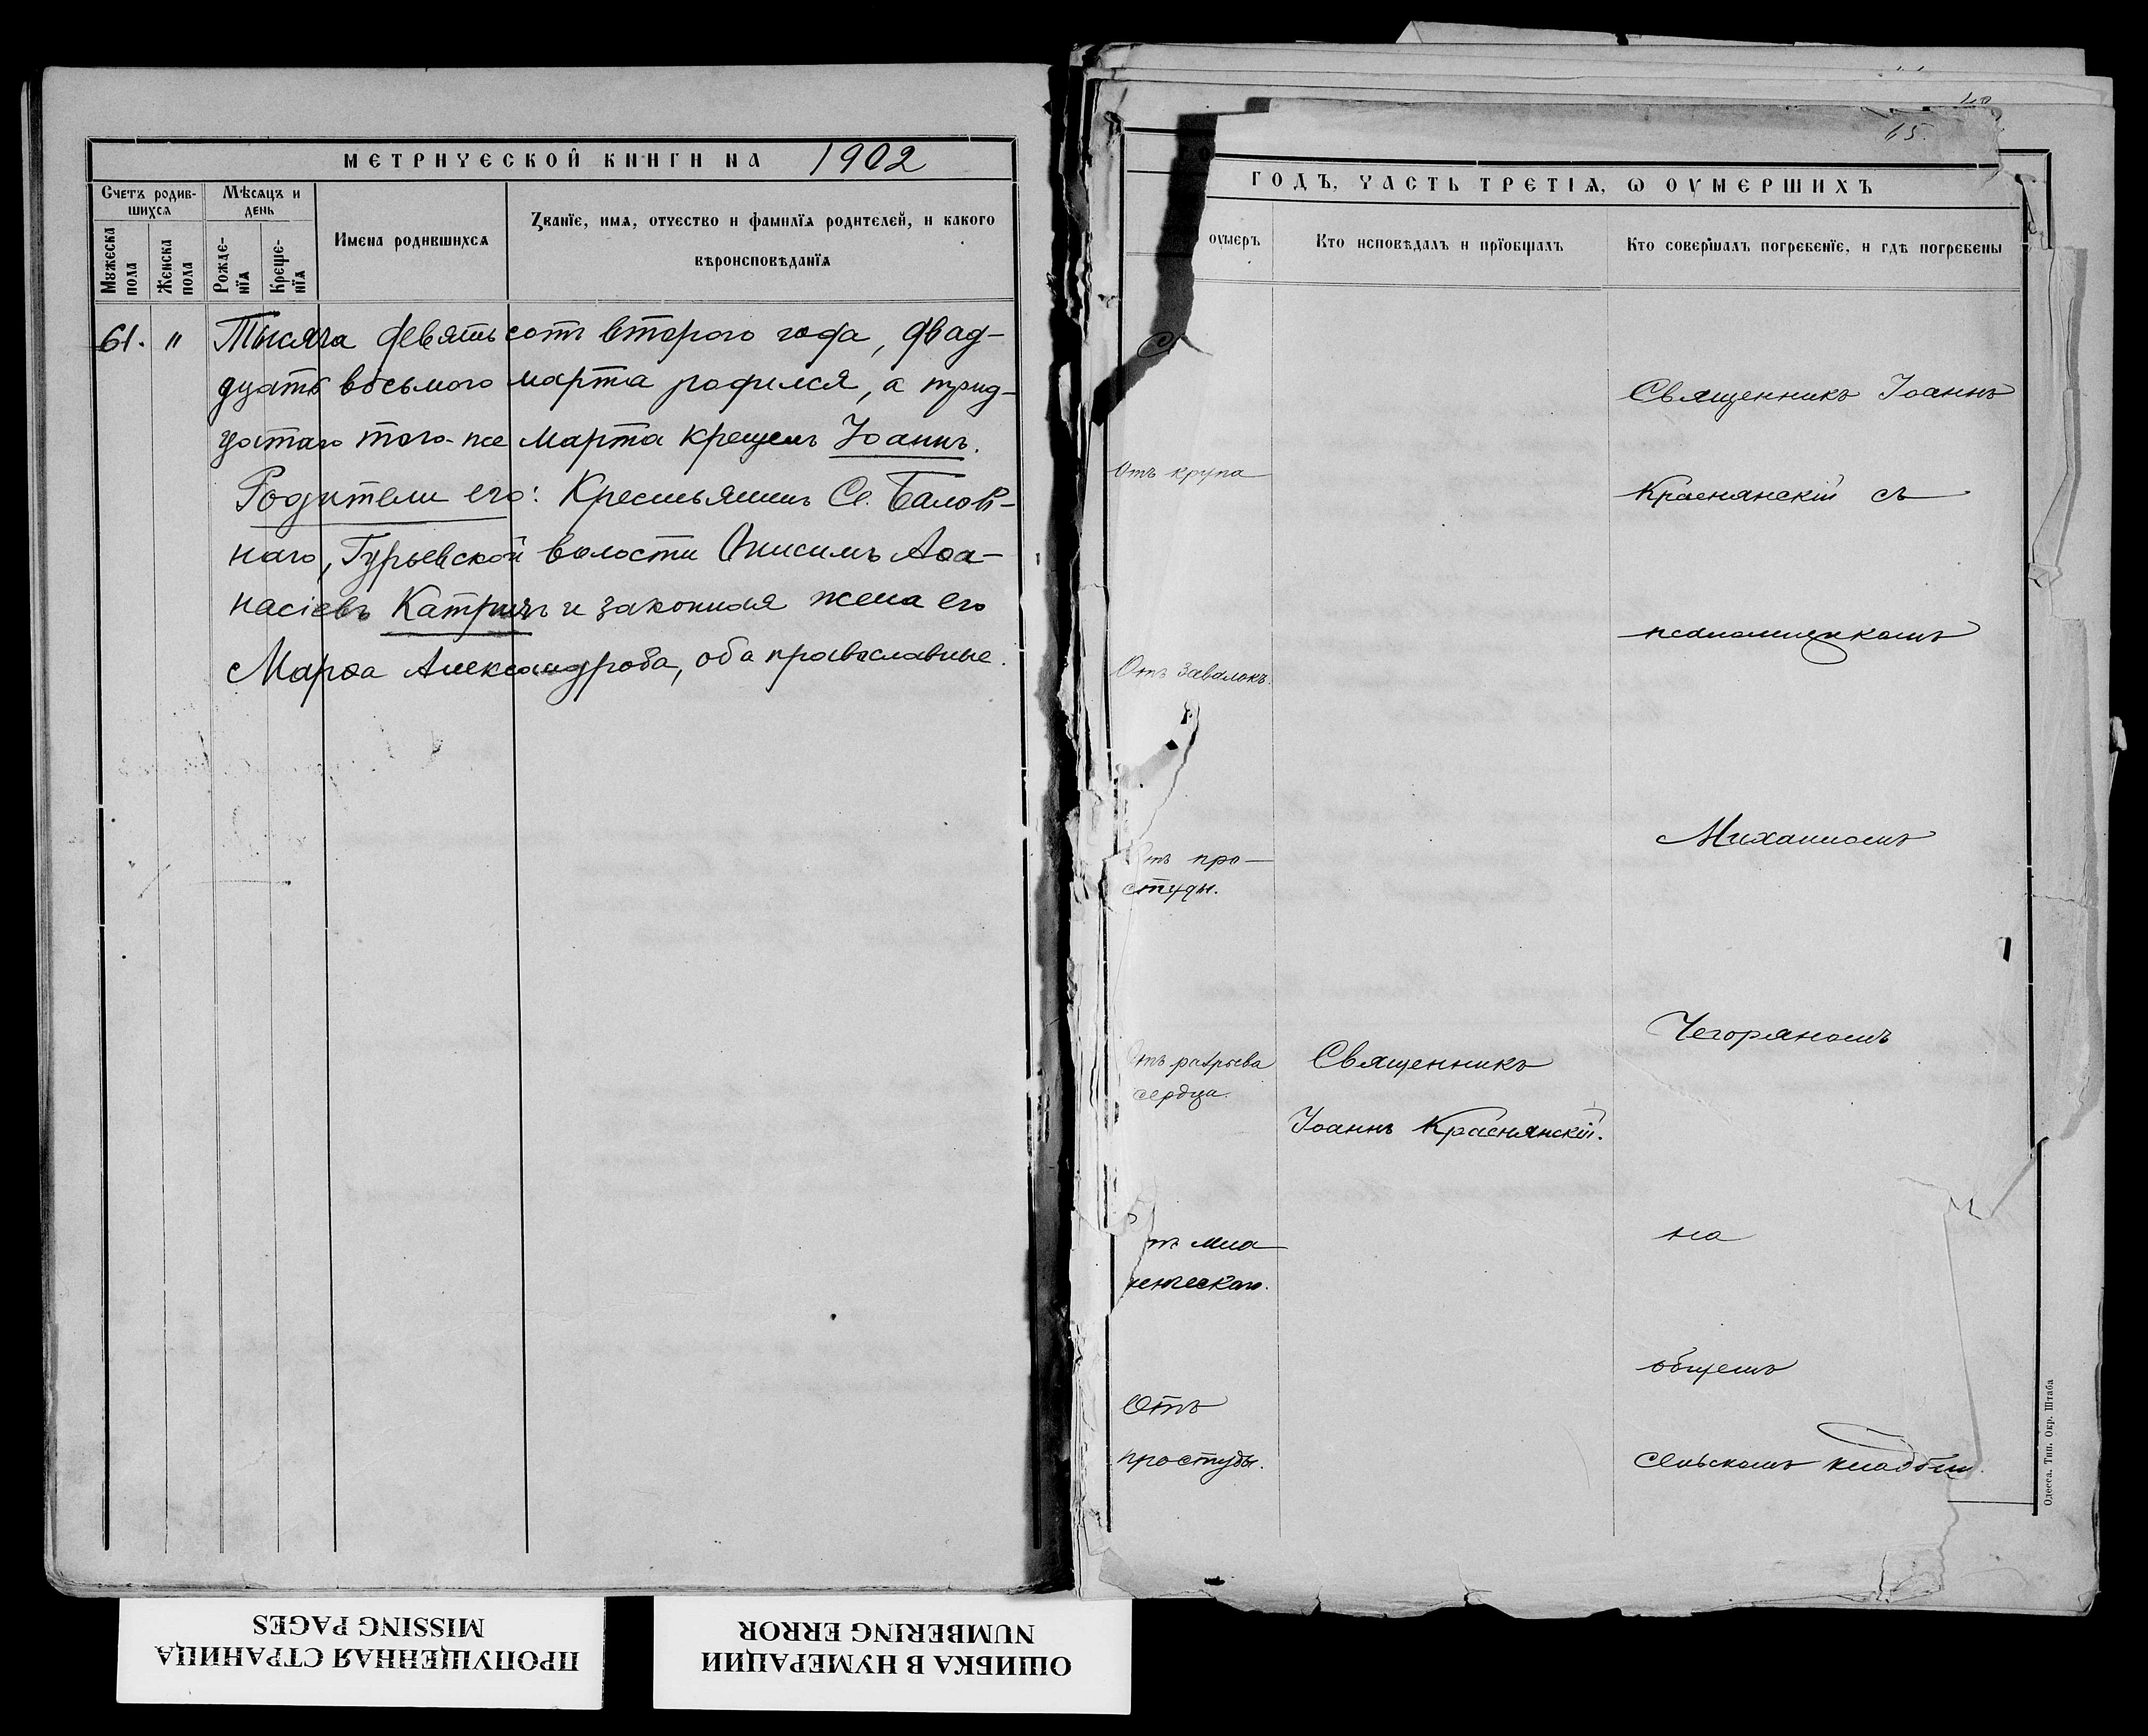 МЕТРИЧЕСКОЙ КНИГИ НА 1902
Счетъ родив-
шихся
Мѣсяцъ и
день
Имена родившихся
Званіе, имя, отчество и фамилія родителей, и какого
вѣроисповѣданія
Мужеска
пола
Женска
пола
Рожде-
нія
Креще-
нія
61. " Тысяча девятьсотъ второго года, двад-
цать восьмого марта родился, а трид-
цатаго того-же марта крещенъ Іоаннъ.
Родители его: Крестьянинъ С.
наго, Гурьевской волости Онисимъ Аѳа-
насіевъ Катричъ и законная жена его
Марѳа Александрова, оба православные.
15.
ГОДЪ, ЧАСТЬ ТРЕТІЯ, Ѡ ОУМЕРШИХЪ
оумеръ
Кто исповѣдалъ и пріобщалъ
Кто совершалъ погребеніе, и гдѣ погребены
Священникъ Іоаннъ
Отъ крупа
Краснянскій съ
псаломщикомъ
Отъ завалокъ.
Михаиломъ
Отъ про-
студы.
Чегоряномъ
Отъ разрыва
сердца.
Священникъ
Іоаннъ Краснянскій.
на
мла-
денческаго.
общемъ
Отъ
простуды.
сельскомъ кладбищ
Одесса. Тип. Окр. Штаба
ПРОПУЩЕННАЯ СТРАНИЦА
MISSING PAGES
ОШИБКА В НУМЕРАЦИИ
NUMBERING ERROR